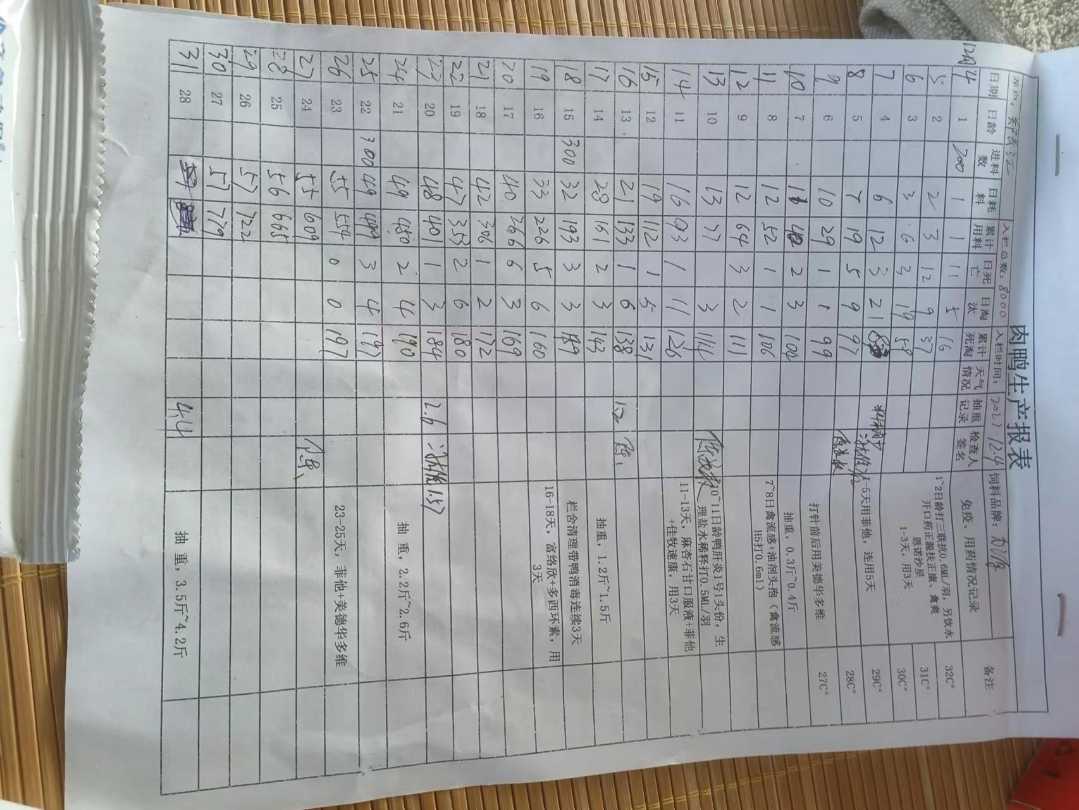 肉鸭生产报表
入栏总数：8000 入栏时间：2023 12.4 饲料品牌：
日期 日龄 进料数 日耗料 累计用料 日死亡 日淘汰 累计死淘 天气情况 抽重记录 检查人签名 免疫、用药情况记录 备注
12月4 1 200 1 1 11 5 16 32C°
5 2 2 3 12 9 37 1~2日龄打三联抗0.6ML/羽，另饮水 31C°
开口药正源扶正康、禽典
恩诺沙星
6 3 3 6 3 19 58 1-3天，用3天 30C°
7 4 6 12 3 21 29C°
8 5 7 19 5 9 97 4-5天用菲他，连用5天 28C°
9 6 10 29 1 1 99 打针前后用美德华多维 27C°
10 7 11 40 2 3 104 抽重，0.3斤~0.4斤
11 8 12 52 1 1 106 7~8日禽流感+油剂头孢（禽流感
H5打0.6ml）
12 9 12 64 3 2 111
13 10 13 77 3 114 10~11日龄鸭肝炎1号1头份，生
理盐水稀释打0.5ML/羽
14 11 16 93 1 11 126 11-13天，麻杏石甘口服液+菲他
+佳牧速康，用3天
15 12 19 112 1 5 131
16 13 21 133 1 6 138 1.2
17 14 28 161 2 3 143 抽重，1.2斤~1.5斤
18 15 300 32 193 3 3 149 栏舍清理带鸭消毒连续3天
19 16 33 226 5 6 160 16-18天，富络欣+多西环素，用
3天
20 17 40 266 6 3 169
21 18 42 306 1 2 172
22 19 47 353 2 6 180
23 20 48 401 1 3 184 2.6 1.57
24 21 49 450 2 4 190 抽重，2.2斤~2.6斤
25 22 300 49 499 3 4 197
26 23 55 554 0 0 197 23-25天，菲他+美德华多维
27 24 55 609
28 25 56 665
29 26 57 722
30 27 57 779
31 28 4.4 抽重，3.5斤~4.2斤